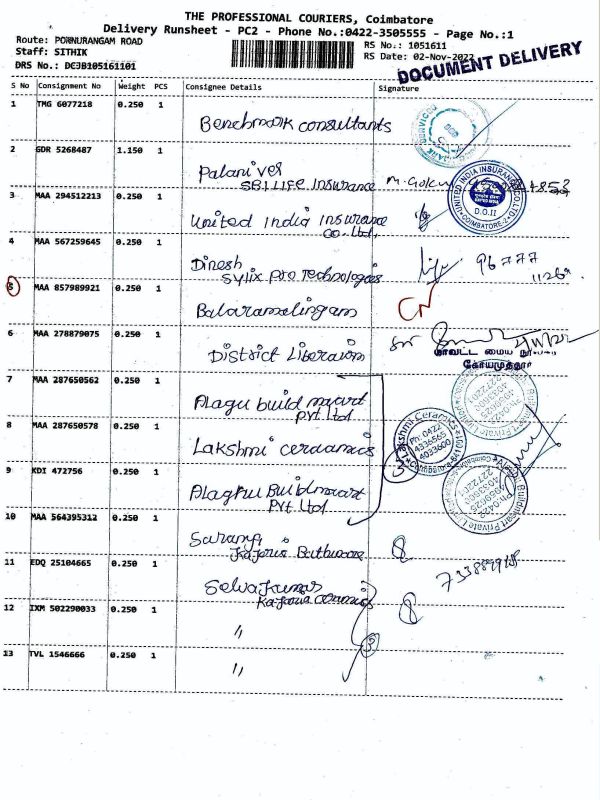 THE PROFESSIONAL COURIERS, Coimbatore
Delivery Runsheet - PC2 - Phone No.:0422-3505555 - Page No.:1
Route: PONNURANGAM ROAD
RS No.: 1051611
Staff: SITHIK
RS Date: 02-Nov-2022
DRS No.: DCJB105161101
DOCUMENT DELIVERY
S No Consignment No Weight PCS Consignee Details Signature
1 TMG 6077218 0.250 1
Benchmark consultants
2 GDR 5268487 1.150 1
Palanivel
SBI LIFE Insurance
3 MAA 294512213 0.250 1
United India Insurance
Co. Ltd.
UNITED INDIA INSURANCE CO. LTD.
D.O.II
COIMBATORE
4 MAA 567259645 0.250 1
Dinesh
Sylix Pro Technologies
96777
5 MAA 857989921 0.250 1
Balaramalingam
CN
6 MAA 278879075 0.250 1
District Liberaion
மாவட்ட மைய
கோயமுத்தூர்
7 MAA 287650562 0.250 1
Alagu build maart
Pvt Ltd
8 MAA 287650578 0.250 1
Lakshmi ceraamics
Lakshmi Ceramics
Ph: 0422
4336565
4033600
3
9 KDI 472756 0.250 1
Alaghu Buildmaart
Pvt Ltd
10 MAA 564395312 0.250 1
Sarang
Kajaria Bathware
11 EDQ 25104665 0.250 1
Selvakumar
Kajaria ceramics
12 IXM 502290033 0.250 1
"
3
13 TVL 1546666 0.250 1
"